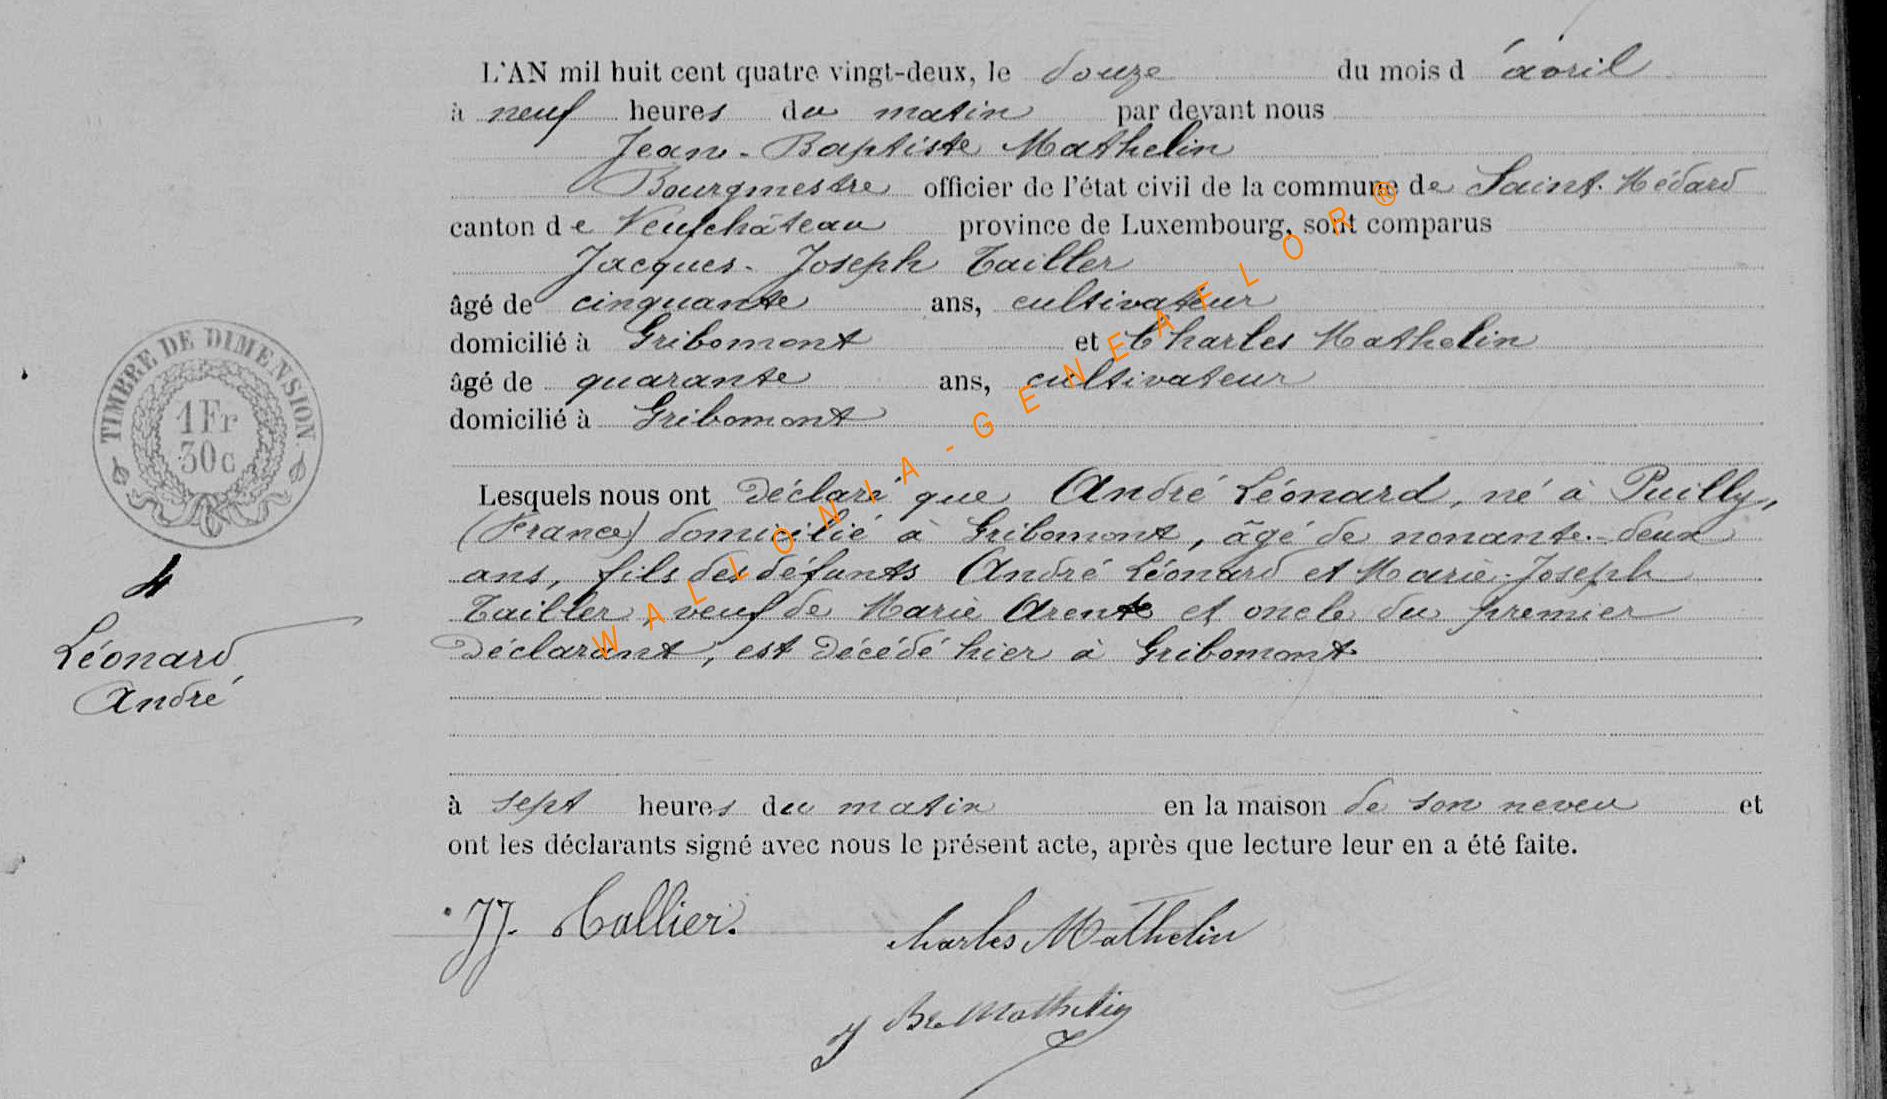 L'AN mil huit cent quatre vingt-deux, le douze du mois d'avril
à neuf heures du matin par devant nous
Jean-Baptiste Mathelin
Bourgmestre officier de l'état civil de la commune de Saint-Médard
canton de Neufchâteau province de Luxembourg, sont comparus
Jacques-Joseph Tailler
âgé de cinquante ans, cultivateur
domicilié à Gribomont et Charles Mathelin
âgé de quarante ans, cultivateur
domicilié à Gribomont
TIMBRE DE DIMENSION
1 Fr
30 c
Lesquels nous ont déclaré que André Léonard, né à Puilly,
(France) domicilié à Gribomont, âgé de nonante-deux
ans, fils des défunts André Léonard et Marie-Joseph
Tailler, veuf de Marie Arente et oncle du premier
déclarant, est décédé hier à Gribomont
4
Léonard
André
à sept heures du matin en la maison de son neveu et
ont les déclarants signé avec nous le présent acte, après que lecture leur en a été faite.
JJ. Tallier.
Charles Mathelin
J Bte Mathelin
WALLONIA-GENEAFLOR®